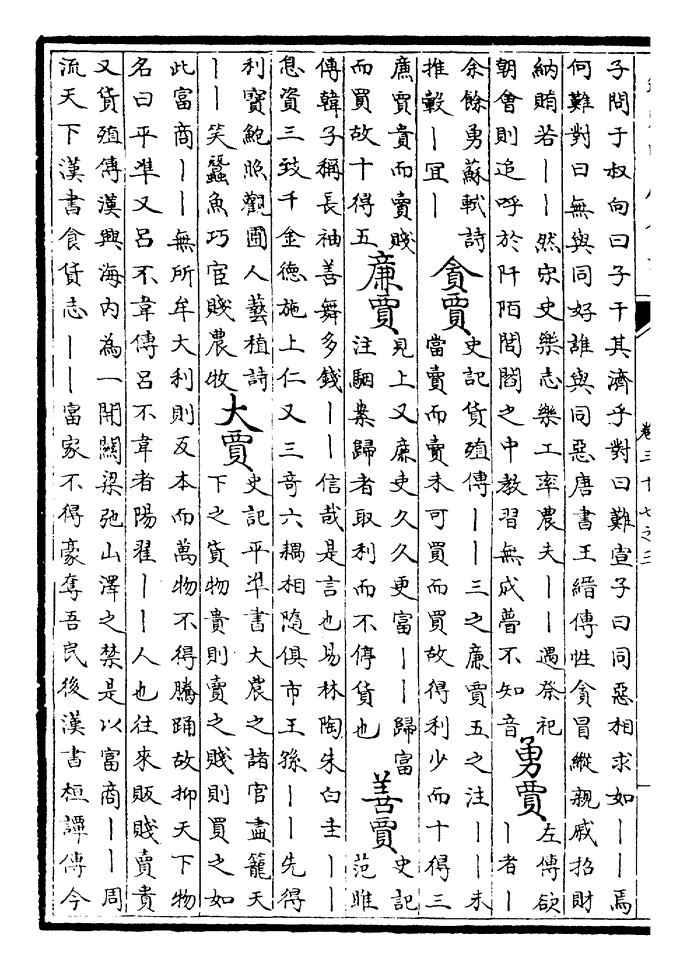 卷三十七之三
子問于叔向曰子干其濟乎對曰難宣子曰同惡相求如丨丨焉
何難對曰無與同好誰與同惡唐書王縉傳性貪冒縱親戚招財
納賄若丨丨然宋史樂志樂工率農夫丨丨遇祭祀
朝會則追呼於阡陌閭閻之中教習無成瞢不知音
勇賈
左傳欲
丨者丨
余餘勇蘇軾詩
推轂丨宜丨
貪賈
史記貨殖傳丨丨三之廉賈五之注丨丨未
當賣而賣未可買而買故得利少而十得三
廉賈貴而賣賤
而買故十得五
廉賈
見上又廉吏久久更富丨丨歸富
注駰案歸者取利而不停貨也
善賈
史記
范雎
傳韓子稱長袖善舞多錢丨丨信哉是言也易林陶朱白圭丨丨
息資三致千金德施上仁又三奇六耦相隨俱市王孫丨丨先得
利寶鮑照觀圃人藝植詩
丨丨笑蠶魚巧宦賤農牧
大賈
史記平準書大農之諸官盡籠天
下之貨物貴則賣之賤則買之如
此富商丨丨無所牟大利則反本而萬物不得騰踊故抑天下物
名曰平準又呂不韋傳呂不韋者陽翟丨丨人也往來販賤賣貴
又貨殖傳漢興海內為一開關梁弛山澤之禁是以富商丨丨周
流天下漢書食貨志丨丨富家不得豪奪吾民後漢書桓譚傳今